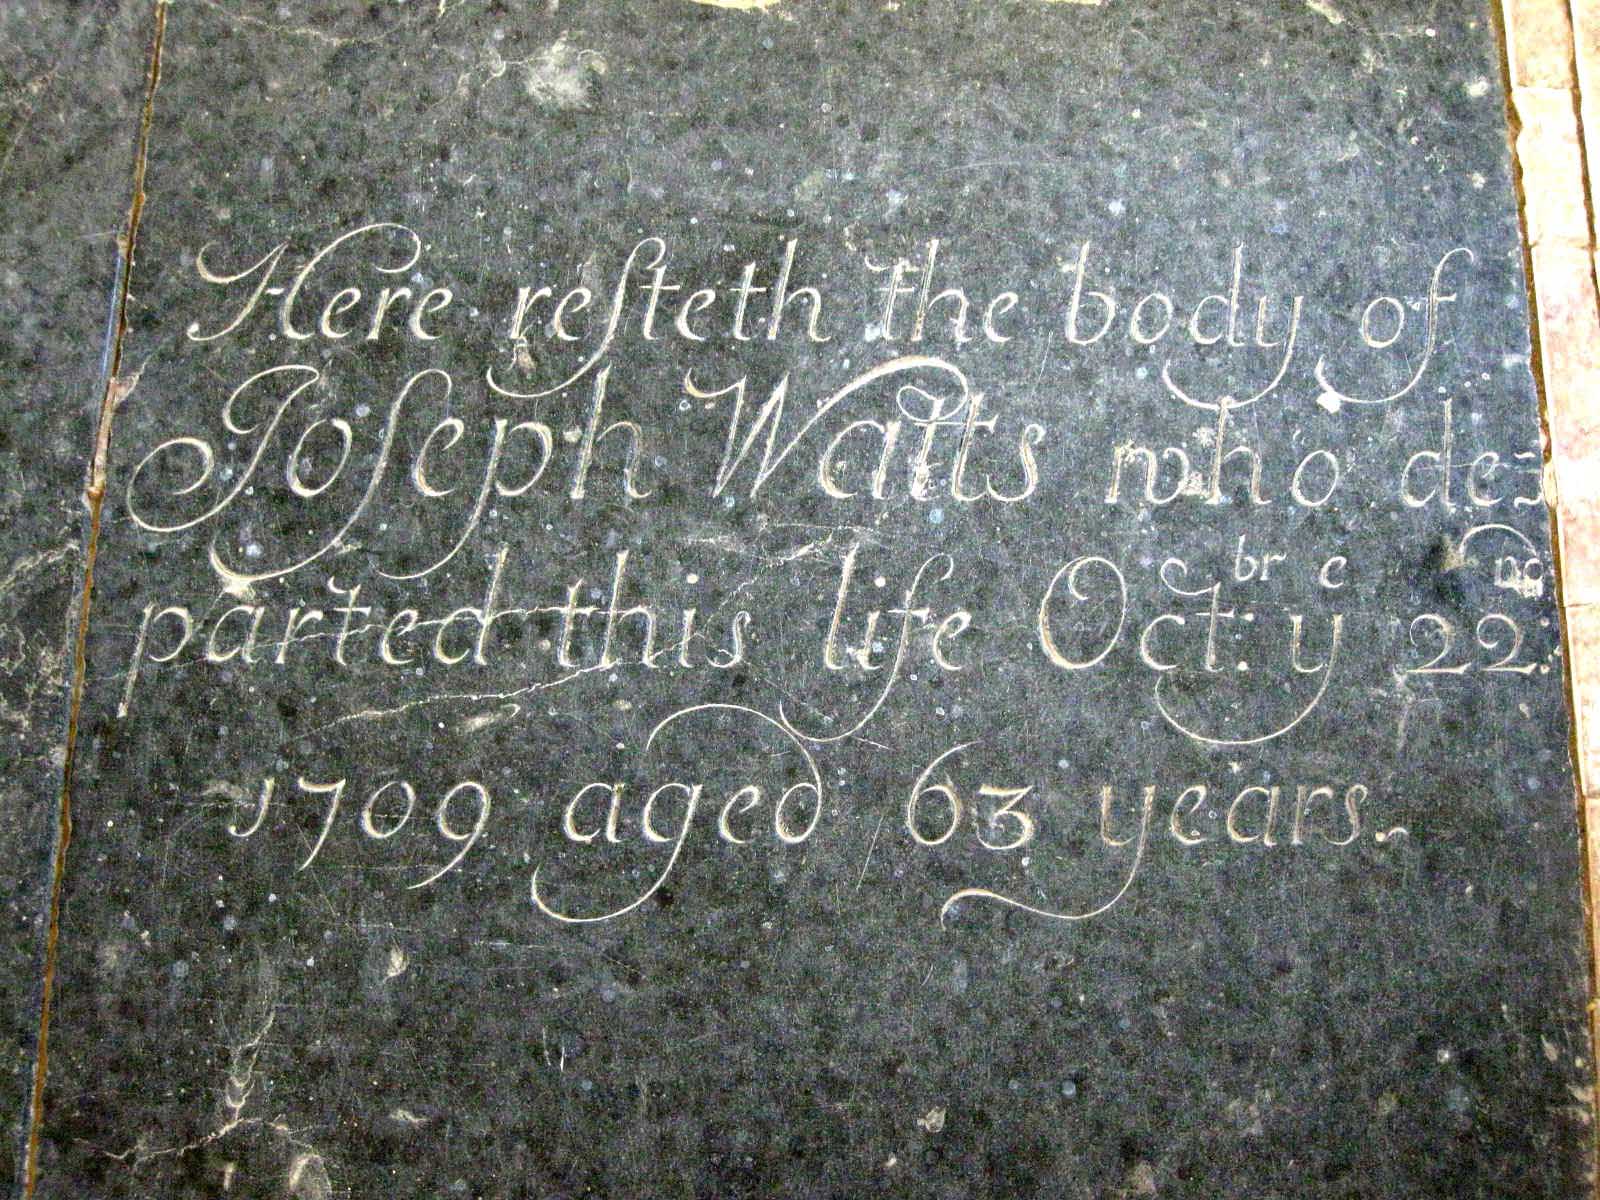 Here reſteth the body of
Joſeph Watts who de=
parted this life Oct.ᵇʳ yᵉ 22:ⁿᵈ
1709 aged 63 years.